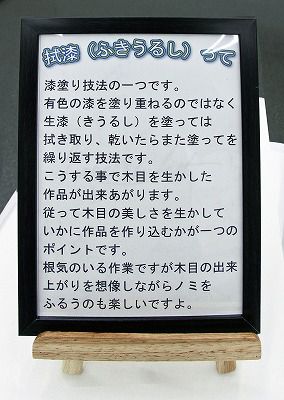 拭漆（ふきうるし）って
漆塗り技法の一つです。
有色の漆を塗り重ねるのではなく
生漆（きうるし）を塗っては
拭き取り、乾いたらまた塗ってを
繰り返す技法です。
こうする事で木目を生かした
作品が出来あがります。
従って木目の美しさを生かして
いかに作品を作り込むかが一つの
ポイントです。
根気のいる作業ですが木目の出来
上がりを想像しながらノミを
ふるうのも楽しいですよ。